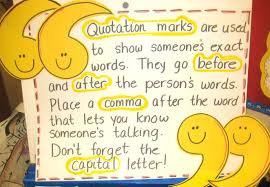 Quotation marks are used
to show someone's exact
words. They go before
and after the person's words.
Place a comma after the word
that lets you know
someone's talking.
Don't forget the
capital letter!